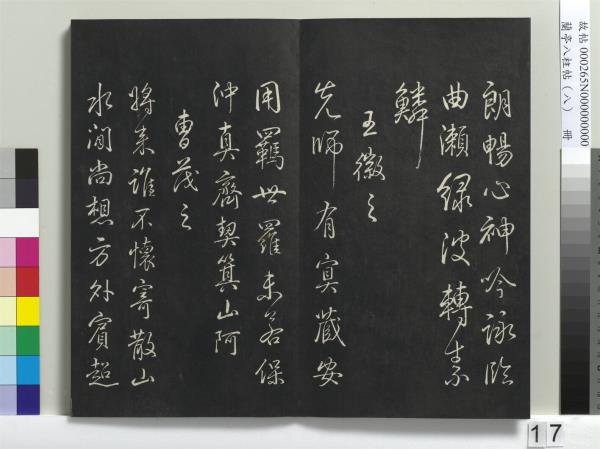 朗暢心神吟詠臨
曲瀨緑波轉素
鱗
王徽之
先師有冥藏安
用羈世羅未若保
沖真齊契箕山阿
曹茂之
將來誰不懷寄散山
水間尚想方外賓超
故帖 000265N000000000
蘭亭八柱帖(八) 冊
17